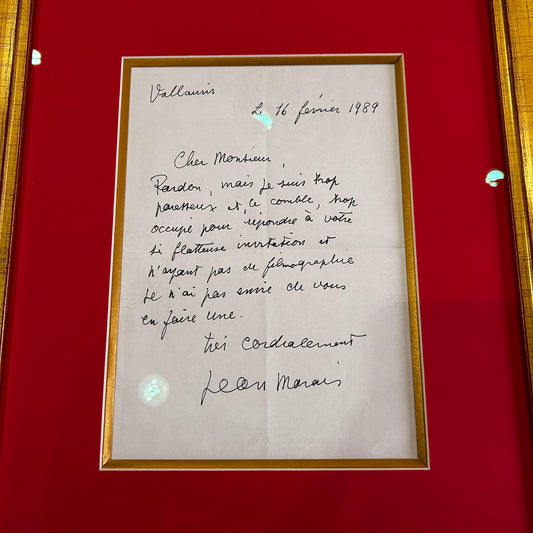 Vallauris
Le 16 février 1989
Cher Monsieur,
Pardon, mais je suis trop
paresseux et, ce comble, trop
occupé pour répondre à votre
si flatteuse invitation et
n'ayant pas de filmographie
je n'ai pas envie de vous
en faire une.
très cordialement
Jean Marais